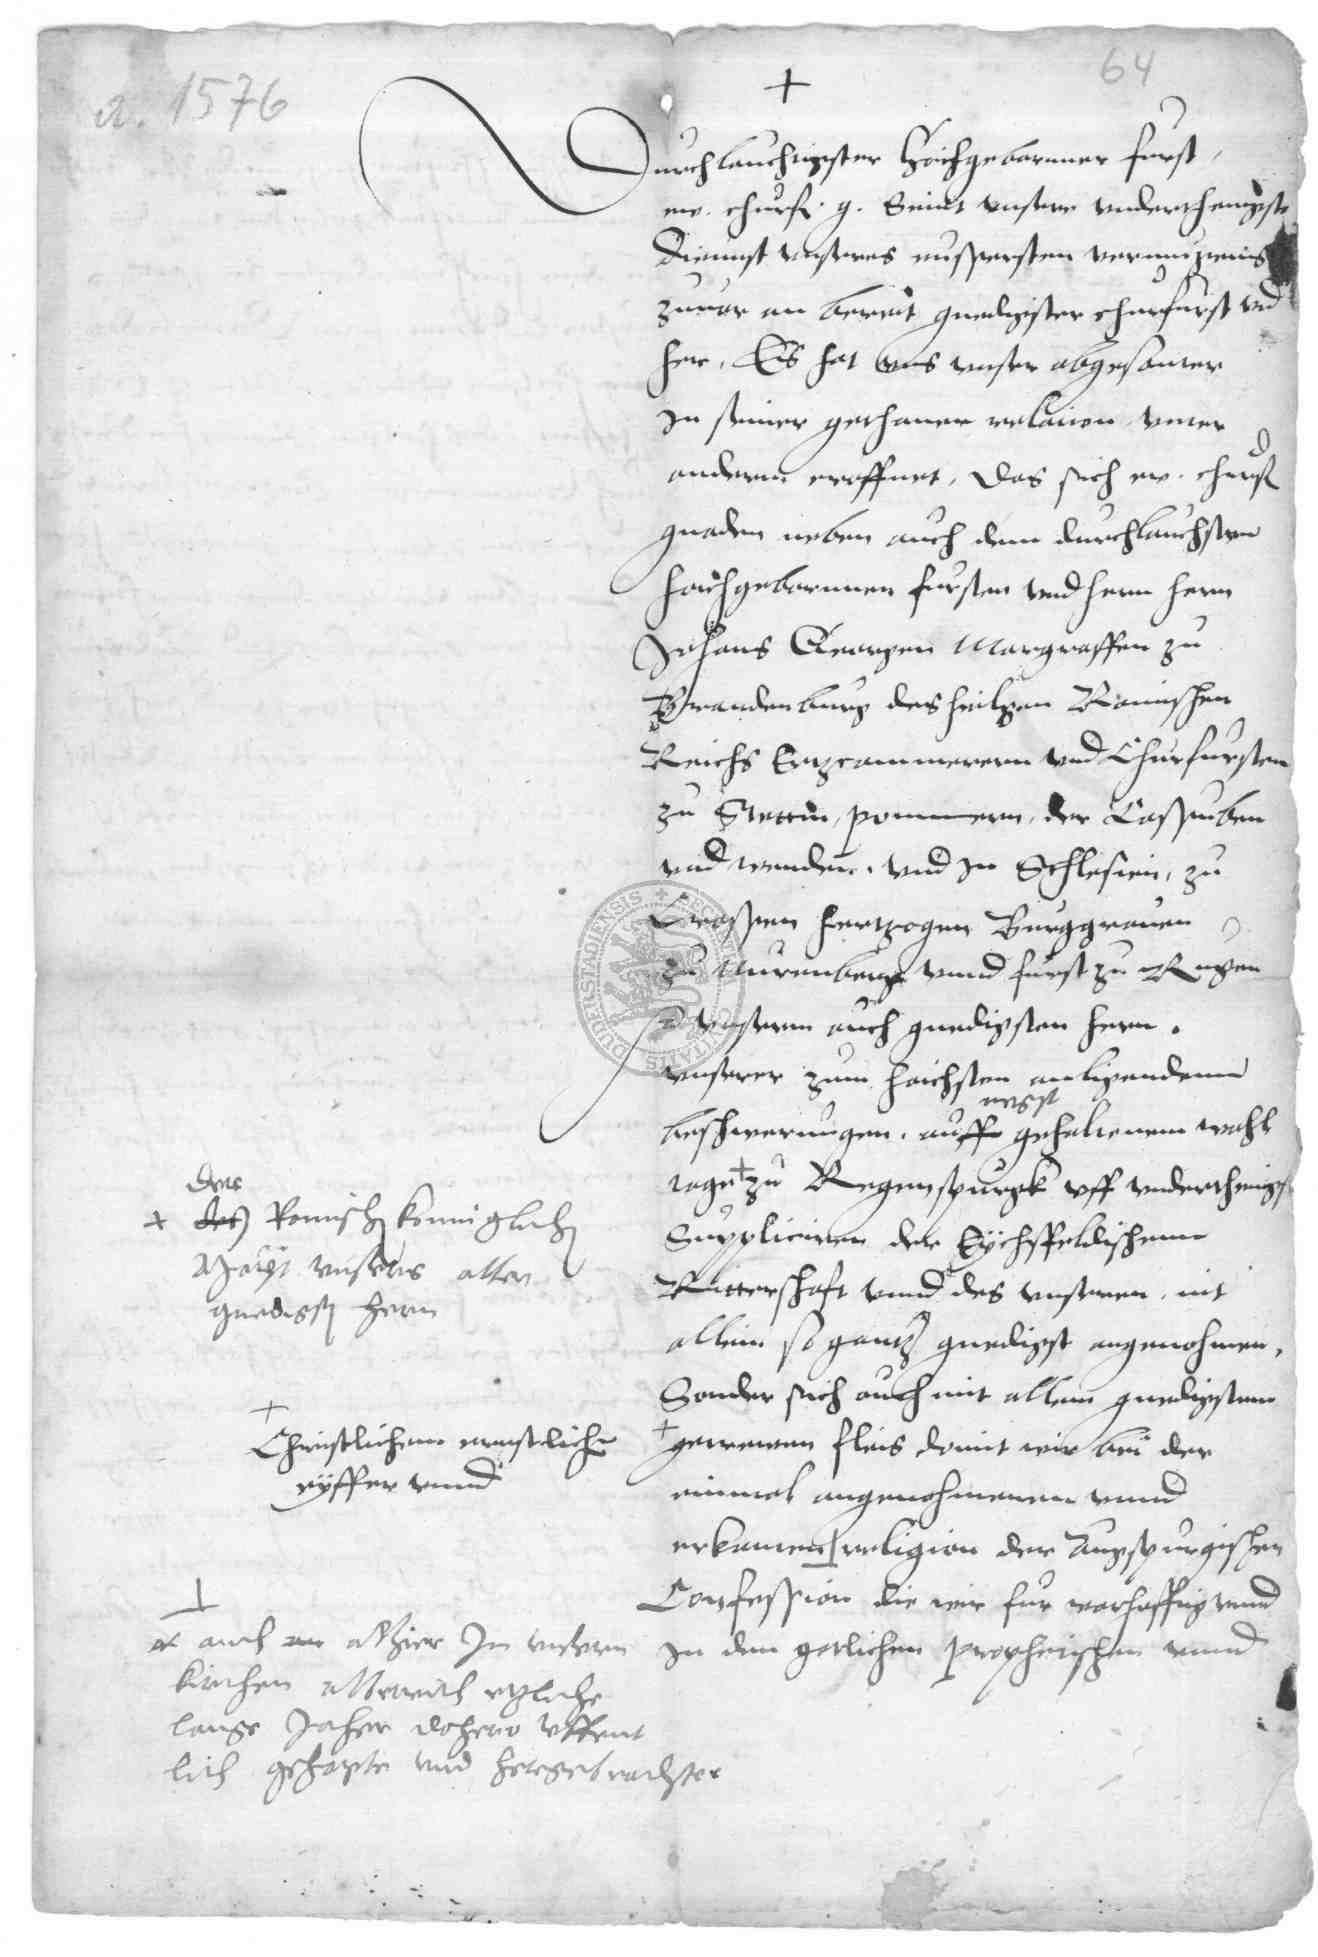 a. 1576
64
+
Durchlauchtigster Hoichgebornner furst,
ew. churf. g. Seint unsere underthenigste
dienst unseres eussersten vermugenis
zuvor an bereit gnedigster churfurst und
her, Es hat uns unser abgesanter
In seiner gethanen relation unter
anderm eroffnet, Das sich ew. churf
gnaden neben auch dem durchlauchsten
hoichgebornnen fursten und hern hern
Johans Georgen Marggraffen zu
Brandenburg des heiligen Romischen
Reichs Ertzcammerern und Churfursten
zu Stettin, pommern, der Cassuben
und wenden, und In Schlesien, zu
Crossen hertzogen Burggraven
zu Nurenberg unnd furst zu Rugen
unserm auch gnedigsten hern.
unserer zum hoichsten anligendenn
beschwerungen, auff negst gehaltenem wahl
tage + zu Regenspurgk uff underthenigs
Suppliciren der Eychsfeldischenn
Ritterschaft unnd des unseren, nit
allein so gantz gnedigst angenohmen,
Sonder sich auch mit allem gnedigstem
+ getrewen fleis domit wir bei der
einmal angenohmenen unnd
erkanten religion der Augspurgischen
Confession die wir fur warhafftig unnd
In den gotlichen prophetischen unnd
der
+ des Romisch konniglich
Mayt unsers aller
gnedigst hern
+
Christlichem ernstlich
eyffer unnd
auch alhier In unsern
kirchen etzliche
lange Jaher dohero offent
lich und hergebrachter
SECRETUM CIVITATIS DUDERSTADIENSIS